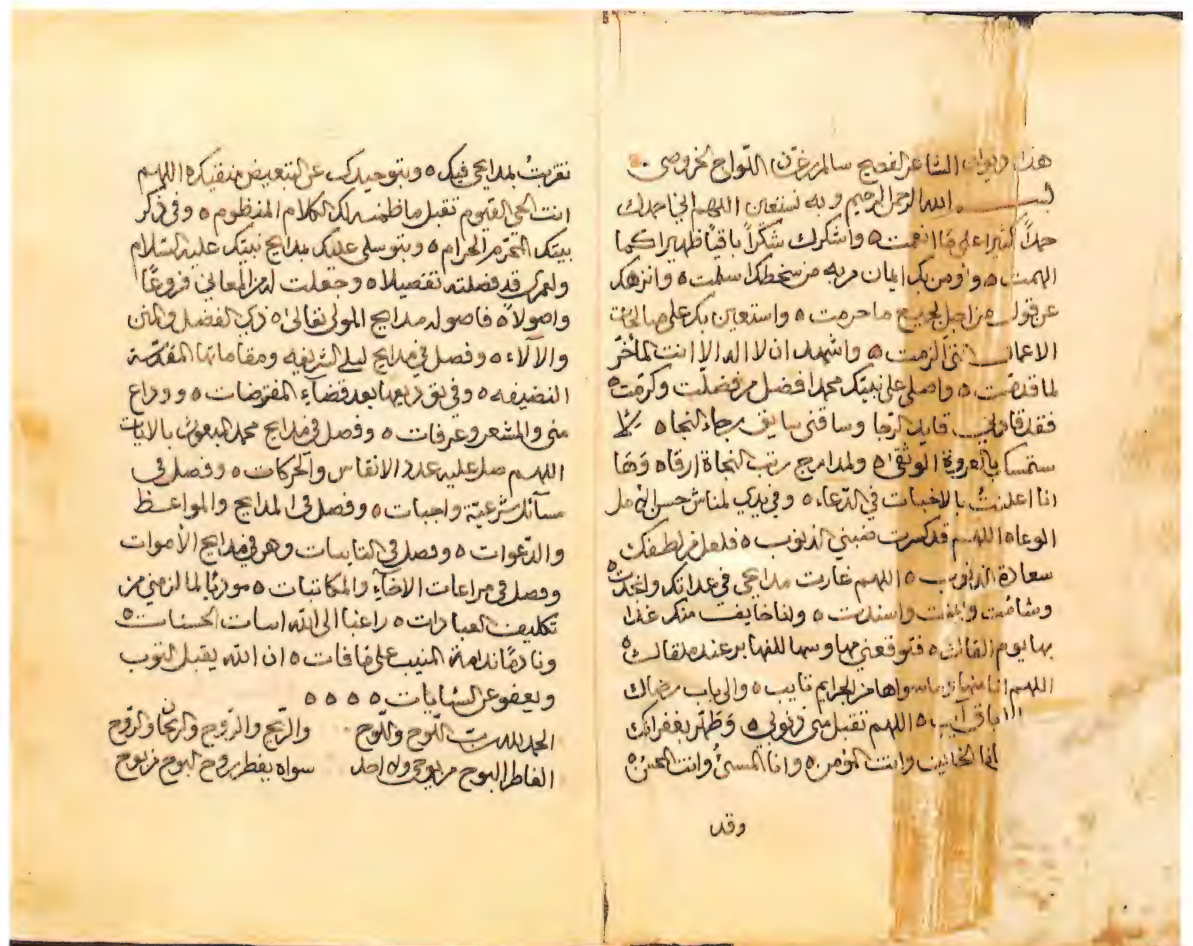 هذا ديوان الشاعر الفصيح سالم بن غسان اللواح الخروصي
بسم الله الرحمن الرحيم وبه نستعين اللهم اني احمدك
حمدا كثيرا على ما انعمت ه واشكرك شكرا باقيا ظهيرا كما
الهمت ه واومن بك ايمان من به من سخطك اسلمت ه وانزهك
عن قول من احل لجميع ما حرمت ه واستعين بك على صالحات
الاعمال التي الزمت ه واشهد ان لا اله الا انت المأخر
لما قدمت ه واصلي على نبيك محمد افضل من فضلت وكرمت ه
فقد قادني قايد الرجا وساقني سايق رجاء النجاه
ستمسكا بالعروة الوثقى ه ولمدارج رتب النجاة ارقاه وها
انا اعلنت بالاخبات في الدعاء ه وفي يدي حسن
الوعاه اللهم قد كسرت الذنوب ه فلعل من لطفك
سعادة الذنوب ه اللهم غارت مدايحي في عداتك وانجدت ه
وشامت وايمنت واسندت ه وانا خايف منك غدا
بها يوم القاك ه فتوقعني بها وسها للفها بر عند ملقاك ه
اللهم انا منها وما سواها من الجرايم تايب ه والى باب مرضاك
آيب ه اللهم تقبل مني ذنوبي ه وطهر بغفرانك
انا الخايف وانت المؤمن ه وانا المسئ وانت المحسن ه
وقد
تقربت بمدايحي فيك ه وبتوحيدك عن التبعيض منفيك ه اللهم
انت الحي القيوم تقبل ما نظمته لك الكلام المنظوم ه وفي ذكر
بيتك المحرم الحرام ه وبتوسلي عليك بمدايح نبيك عليه السلام
ولعمري قد فصلته تفصيلا ه وجعلت له من المعاني فروعا
واصولا ه فاصوله مدايح المولى تعالى ه ذي الفضل والمن
والآلاء ه وفصل في مدايح ليلى الشريفه ومقاماتها المقدسة
النضيفه ه وفي توديعها بعد قضاء المفترضات ه ووداع
منى والمشعر وعرفات ه وفصل في مدايح محمد المبعوث بالايات
اللهم صل عليه عدد الانفاس والحركات ه وفصل في
مسآئل شرعية واجبات ه وفصل في المدايح والمواعظ
والدعوات ه وفصل في التابينات وهي في مدايح الاموات
وفصل في مراعات الاخآء والمكاتبات ه موديا لما لزمني من
تكليف العبادات ه راغبا الى الله اسات الحسنات ه
ونادما ندامة المنيب على ما فات ه ان الله يقبل التوب
ويعفو عن السئايات ه ه ه ه
الحمد لله رب اللوح واللوح والريح والروح والريحان والروح
الفاطر البوح من يوحى ولا احد سواه يفطر بروح البوح من يوح